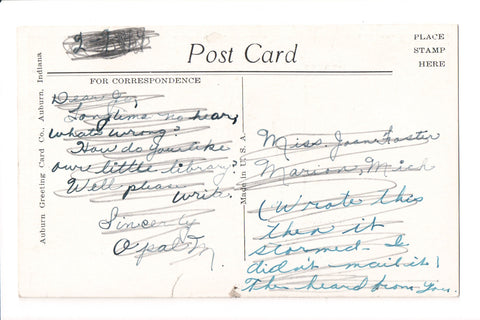 Post Card
PLACE
STAMP
HERE
FOR CORRESPONDENCE
Auburn Greeting Card Co. Auburn, Indiana
Made in U.S.A.
Dear Jo,
Longtime no hear,
whats wrong?
How do you like
oure little library
Well please
write.
Sincerly
Opal M.
Miss. Joan Foster
Marion, Mich
(Wrote this
then it
stormed I
didn't mail it!
The heard from you.